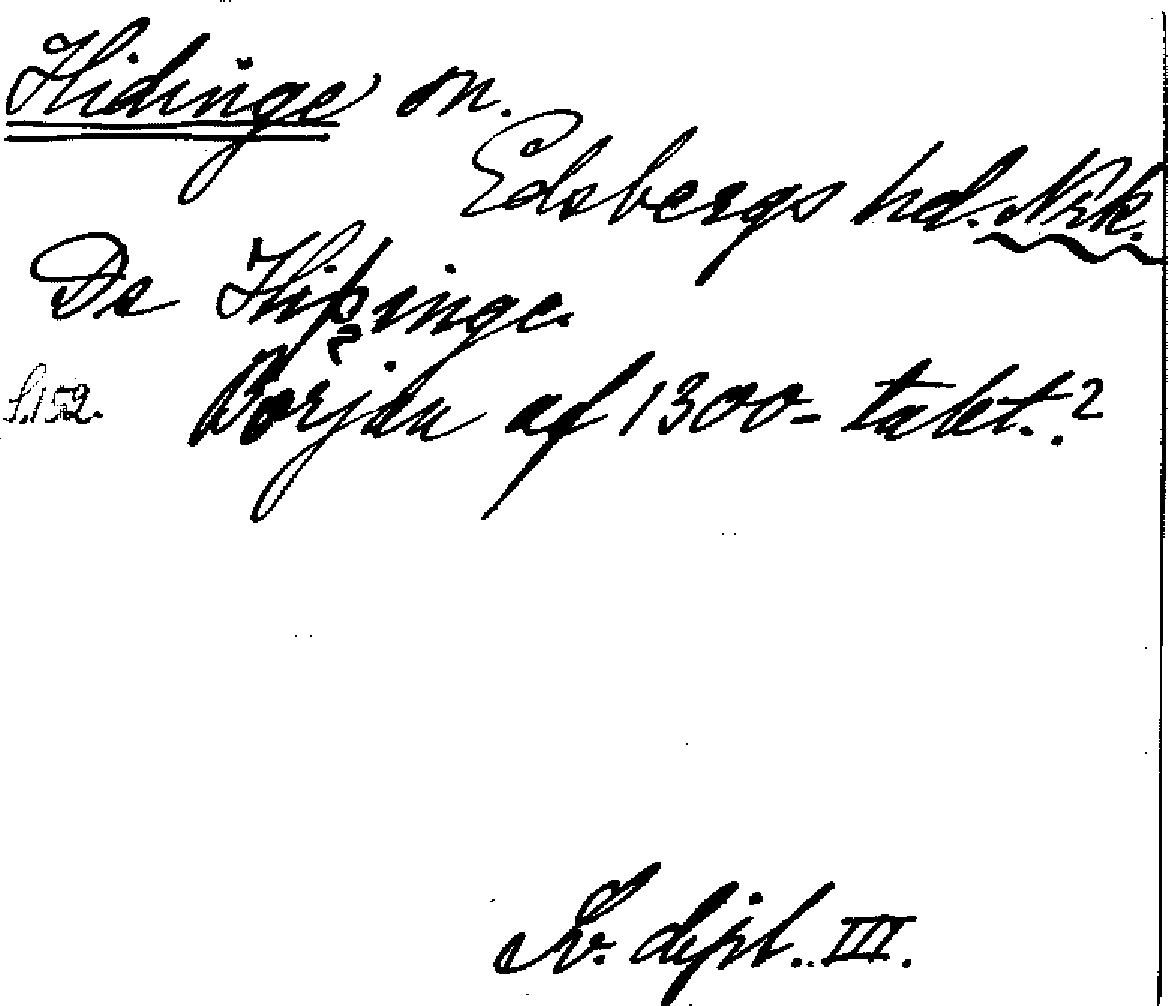 Hidinge sn.
Edsbergs hd. Nrk.
De Hiþinge.
S.152. Början af 1300-talet.?
Sv. dipl. III.